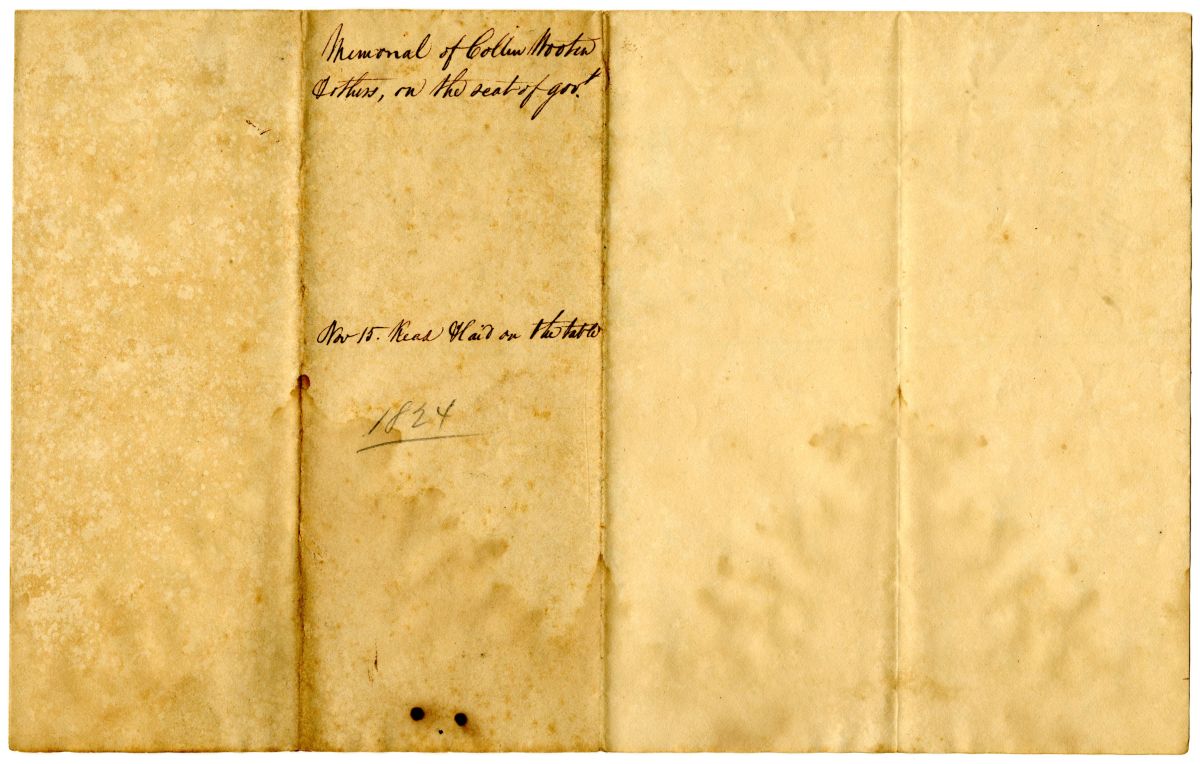 Memorial of Collin Wooten
& others, on the seat of gov.t
Nov 15. Read & laid on the table
1824